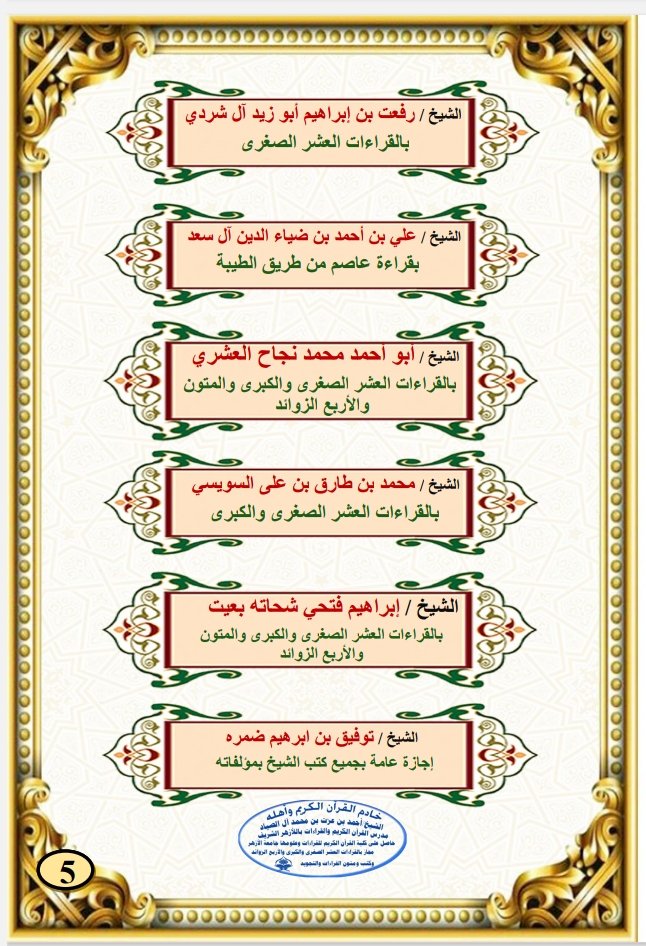 الشيخ / رفعت بن إبراهيم أبو زيد آل شردي
بالقراءات العشر الصغرى
الشيخ / علي بن أحمد بن ضياء الدين آل سعد
بقراءة عاصم من طريق الطيبة
الشيخ / أبو أحمد محمد نجاح العشري
بالقراءات العشر الصغرى والكبرى والمتون
والأربع الزوائد
الشيخ / محمد بن طارق بن على السويسي
بالقراءات العشر الصغرى والكبرى
الشيخ / إبراهيم فتحي شحاته بعيت
بالقراءات العشر الصغرى والكبرى والمتون
والأربع الزوائد
الشيخ / توفيق بن ابرهيم ضمره
إجازة عامة بجميع كتب الشيخ بمؤلفاته
خادم القرآن الكريم وأهله
الشيخ أحمد بن عزت بن محمد آل الصياد
مدرس القرآن الكريم والقراءات بالأزهر الشريف
حاصل على كلية القرآن الكريم للقراءات وعلومها جامعة الأزهر
مجاز بالقراءات العشر الصغرى والكبرى والأربع الزوائد
وكتب ومتون القراءات والتجويد
5